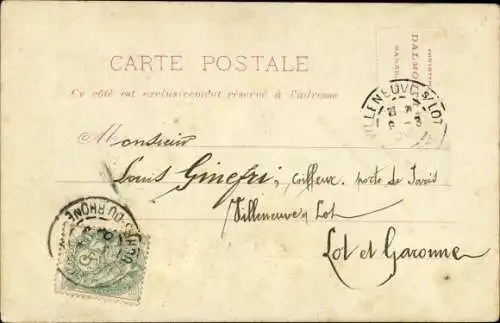 CARTE POSTALE
Ce côté est exclusivement réservé à l'adresse
DALMO
VILLENEUVE S/LOT
Monsieur
Louis Ginefri, coiffeur, porte de Paris
Villeneuve s/ Lot
Lot et Garonne
DU-RHÔNE